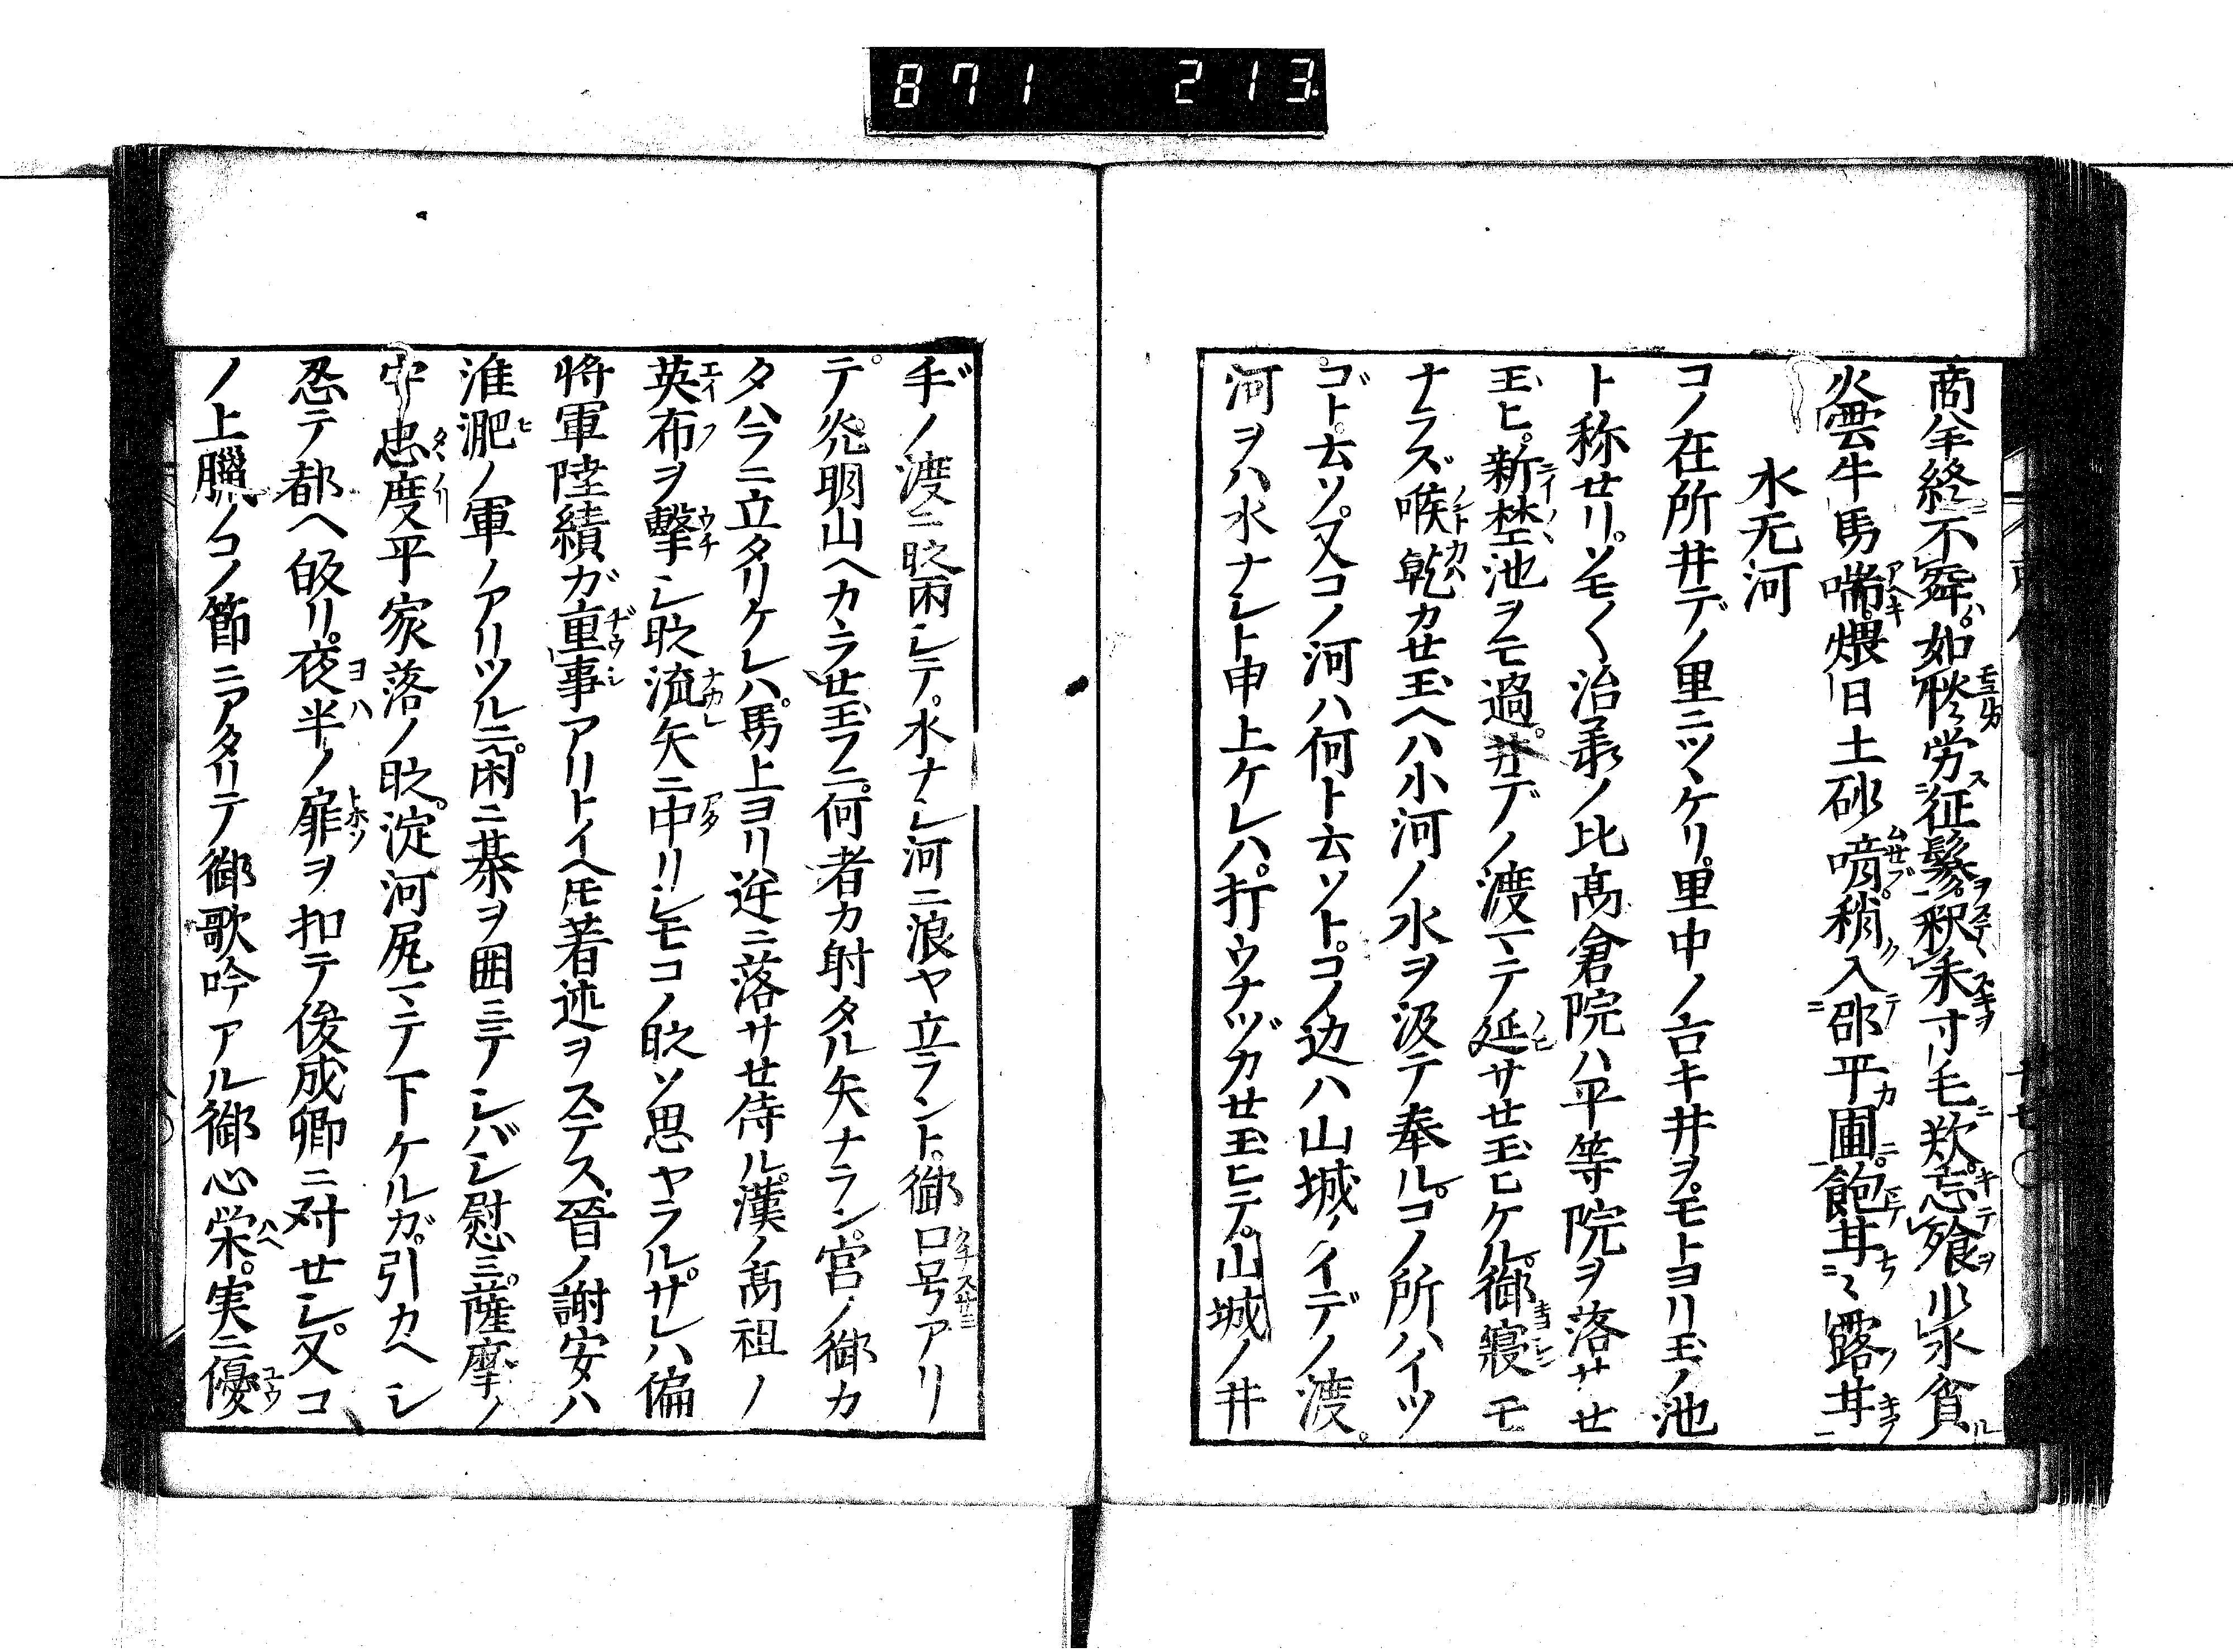 871 213
商羊終不舞。如惔労征鬖釈。禾寸毛欺。忘飱氷貪
火雲牛馬喘。煨日土砂喑。稍入郡平圃。飽茸々露茸
水无河
コノ在所井デノ里ニツヽケリ。里中ノ古キ井ヲ。モトヨリ玉ノ池
ト称セリ。ソモ〱治承ノ比高倉院ハ平等院ヲ落サセ
玉ヒ。新埜池ヲモ過。井デノ渡マテ延サセ玉ヒケル。御寝モ
ナラズ喉乾カせ玉ヘハ小河ノ水ヲ汲テ奉ル。コノ所ハイツ
ゴト云ソ。又コノ河ハ何ト云ソト。コノ辺ハ山城ノイデノ渡。
河ヲハ水ナシト申上ケレハ。打ウナヅカセ玉ヒテ。山城ノ井
デノ渡ニ時雨シテ。水ナシ河ニ浪ヤ立ラント。御口号アリ
テ。光明山ヘカヽラせ玉フニ。何者カ射タル矢ナラン。宮ノ御カ
タハラニ立タリケレハ。馬上ヨリ逆ニ落サせ侍ル。漢ノ高祖ノ
英布ヲ撃シ時流矢ニ中リシモコノ時ソ思ヤラル。サレハ偏
将軍陸績ガ重事アリトイヘトモ著述ヲステス。晉ノ謝安ハ
淮淝ノ軍ノアリツルニ。閑ニ棊ヲ囲ミテシバシ慰ミ。薩摩ノ
守忠度平家落ノ時。淀河尻マテ下ケルガ。引カヘシ
忍テ都ヘ皈リ。夜半ノ扉ヲ扣テ俊成卿ニ対せシ。又コ
ノ上臈ノコノ節ニアタリテ御歌吟アル御心栄。実ニ優